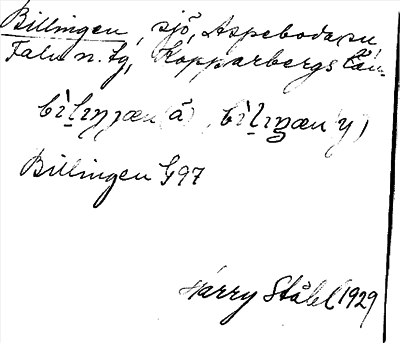 Billingen, sjö, Aspeboda sn,
Falu n. tg, Kopparbergs län.
bìlıŋæn (ä), bìlıŋæn (y)
Billingen G97
Harry Ståhl 1929